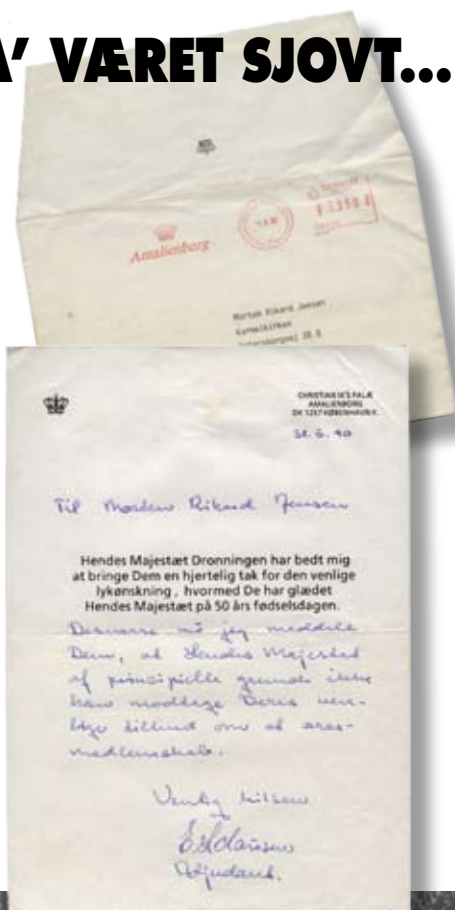 A' VÆRET SJOVT...
Amalienborg
Morten Rikard Jensen
Karmelkirken
CHRISTIAN IX'S PALÆ
AMALIENBORG
DK 1257 KØBENHAVN K.
Til Morten Rikard Jensen
Hendes Majestæt Dronningen har bedt mig
at bringe Dem en hjertelig tak for den venlige
lykønskning , hvormed De har glædet
Hendes Majestæt på 50 års fødselsdagen.
Desværre må jeg meddele
Dem, at Hendes Majestæt
af principielle grunde ikke
kan modtage Deres ven-
lige tilbud om et æres-
medlemskab.
Venlig hilsen
Adjudant.